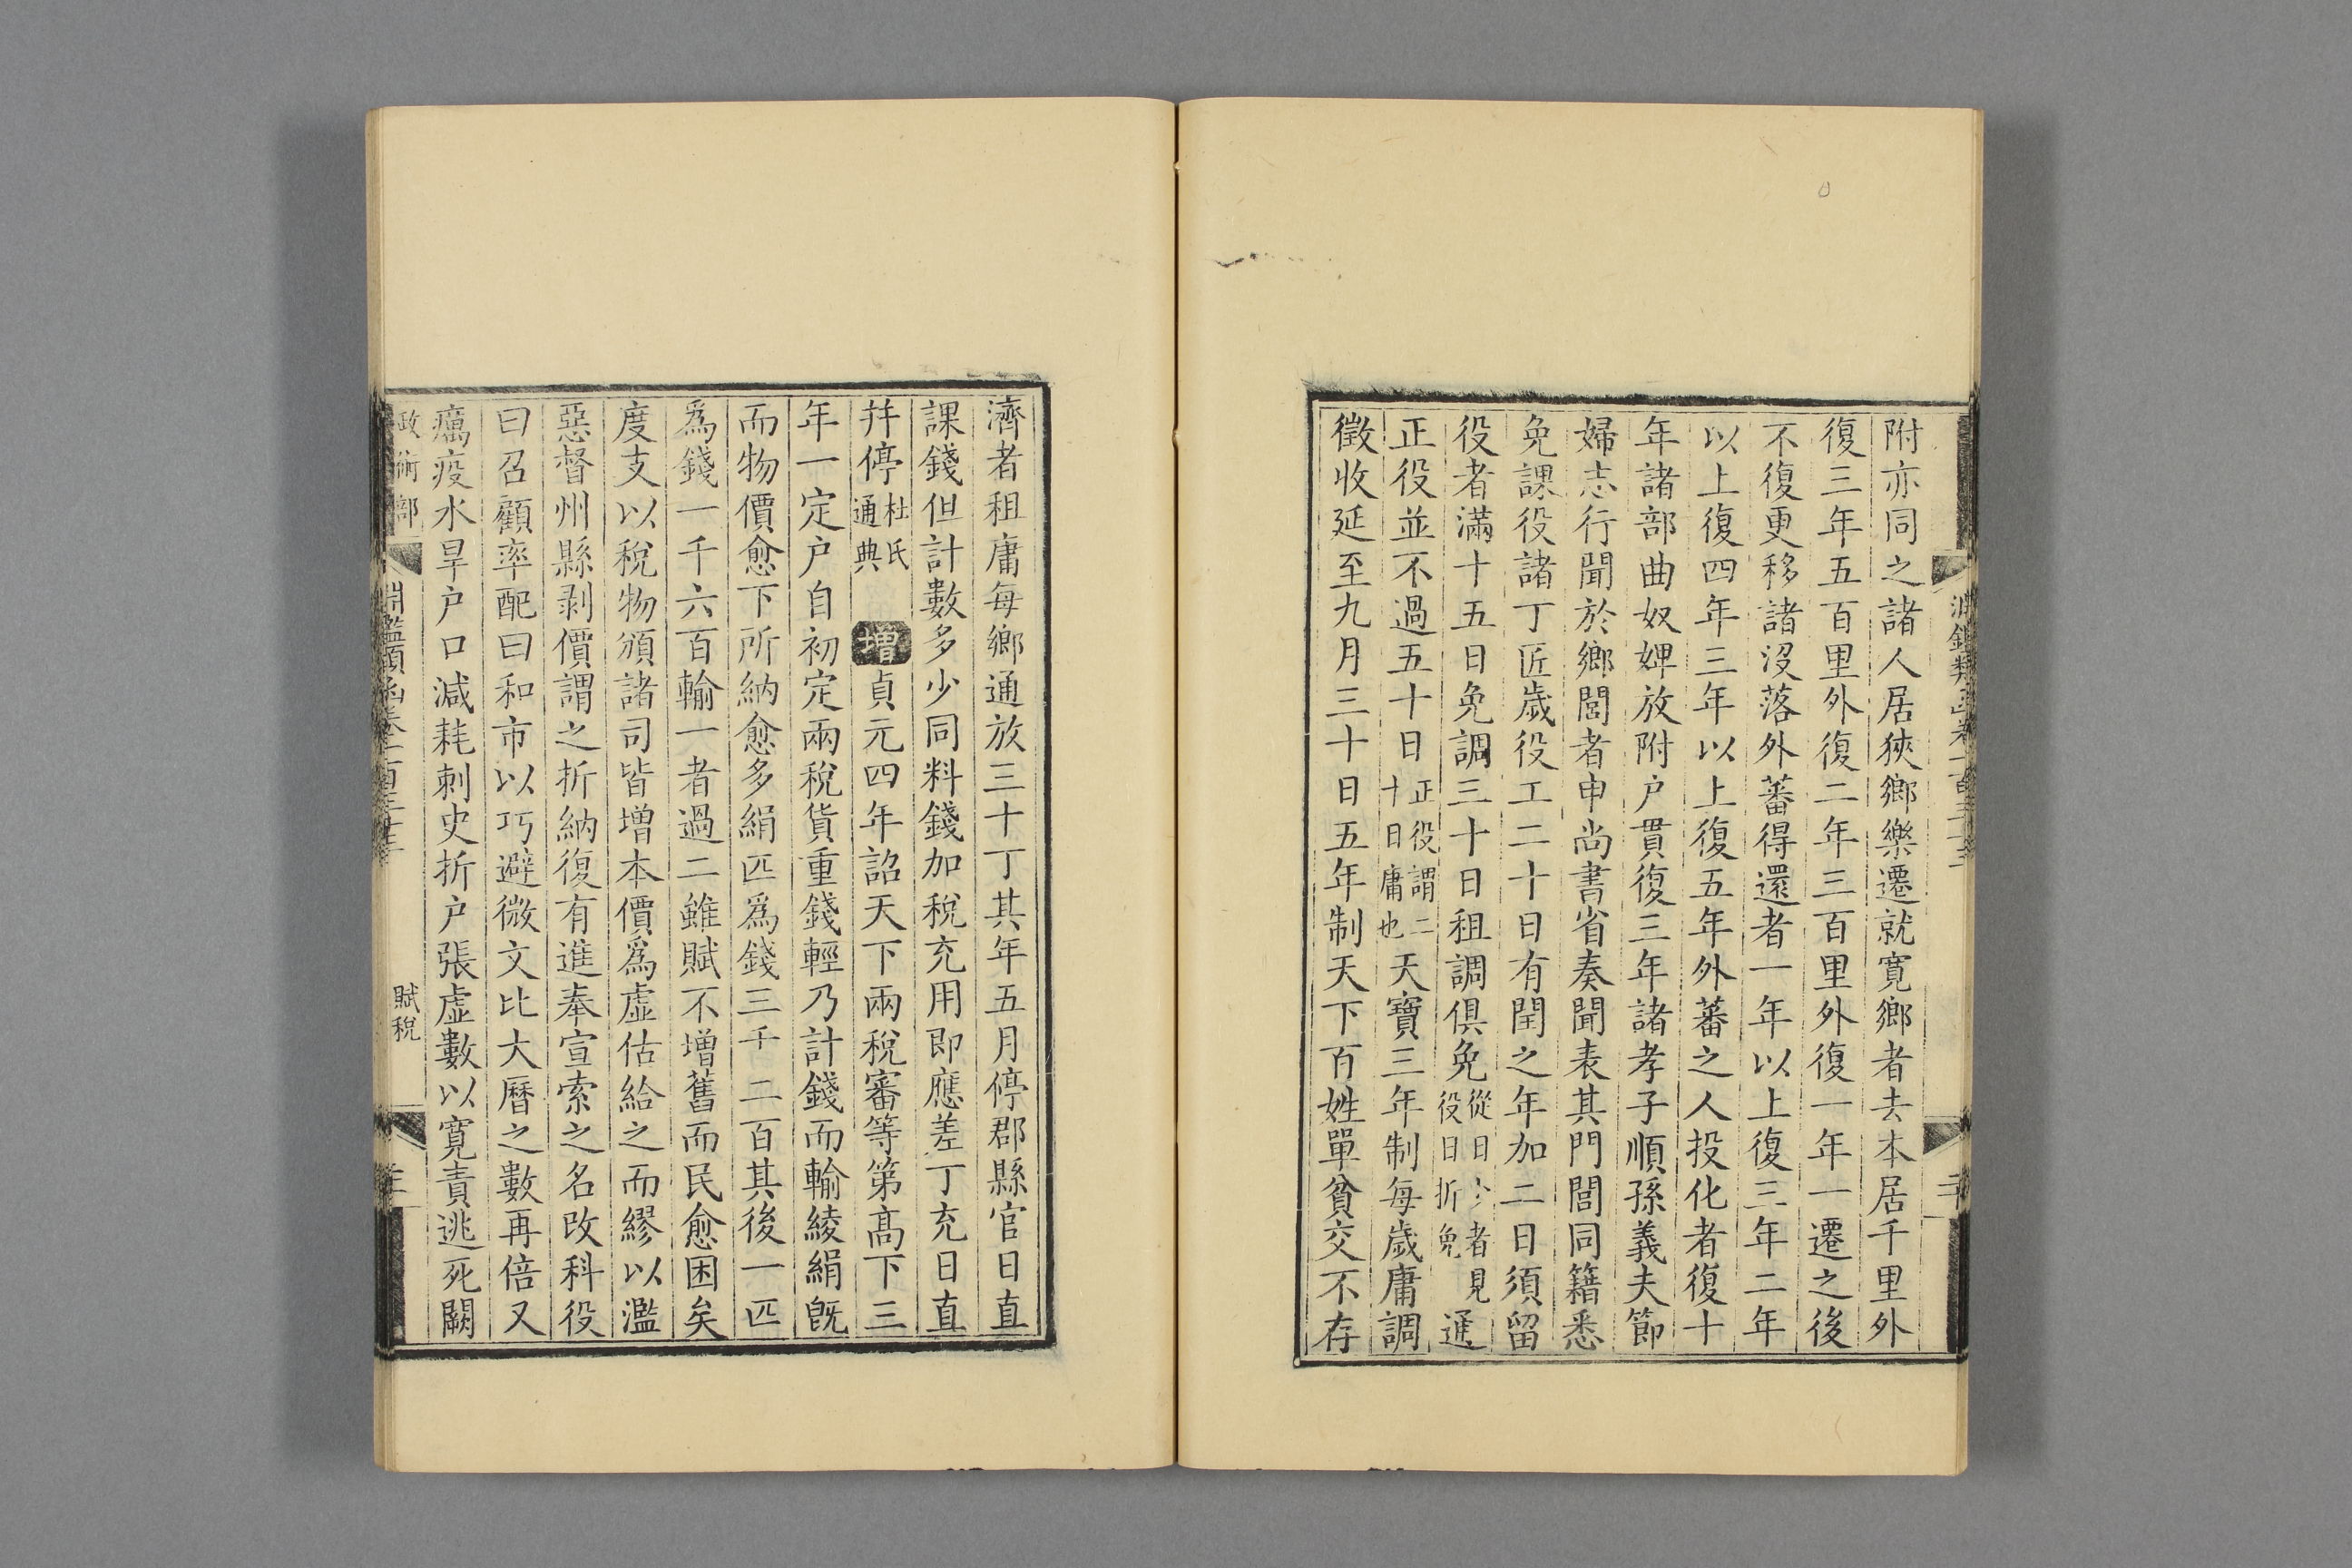 附亦同之諸人居狹鄉樂遷就寛鄉者去本居千里外
復三年五百里外復二年三百里外復一年一遷之後
不復更移諸没落外蕃得還者一年以上復三年二年
以上復四年三年以上復五年外蕃之人投化者復十
年諸部曲奴婢放附户貫復三年諸孝子順孫義夫節
婦志行聞於鄉閭者申尚書省奏聞表其門閭同籍悉
免課役諸丁匠歲役工二十日有閏之年加二日須留
役者滿十五日免調三十日租調俱免從日少者見役日折免通
正役並不過五十日正役謂二十日庸也天寶三年制每歲庸調
徵收延至九月三十日五年制天下百姓單貧交不存
濟者租庸每鄉通放三十丁其年五月停郡縣官日直
課錢但計數多少同料錢加稅充用即應差丁充日直
幷停杜氏通典 增貞元四年詔天下兩稅審等第髙下三
年一定户自初定兩稅貨重錢輕乃計錢而輸綾絹旣
而物價愈下所納愈多絹匹爲錢三千二百其後一匹
爲錢一千六百輸一者過二雖賦不增舊而民愈困矣
度支以稅物頒諸司皆增本價爲虛估給之而繆以濫
惡督州縣剥價謂之折納復有進奉宣索之名改科役
曰召顧率配曰和市以巧避微文比大曆之數再倍又
癘疫水旱户口減耗刺史折户張虛數以寛責逃死闕
政術部 淵鑑類函卷一百三十三 賦稅